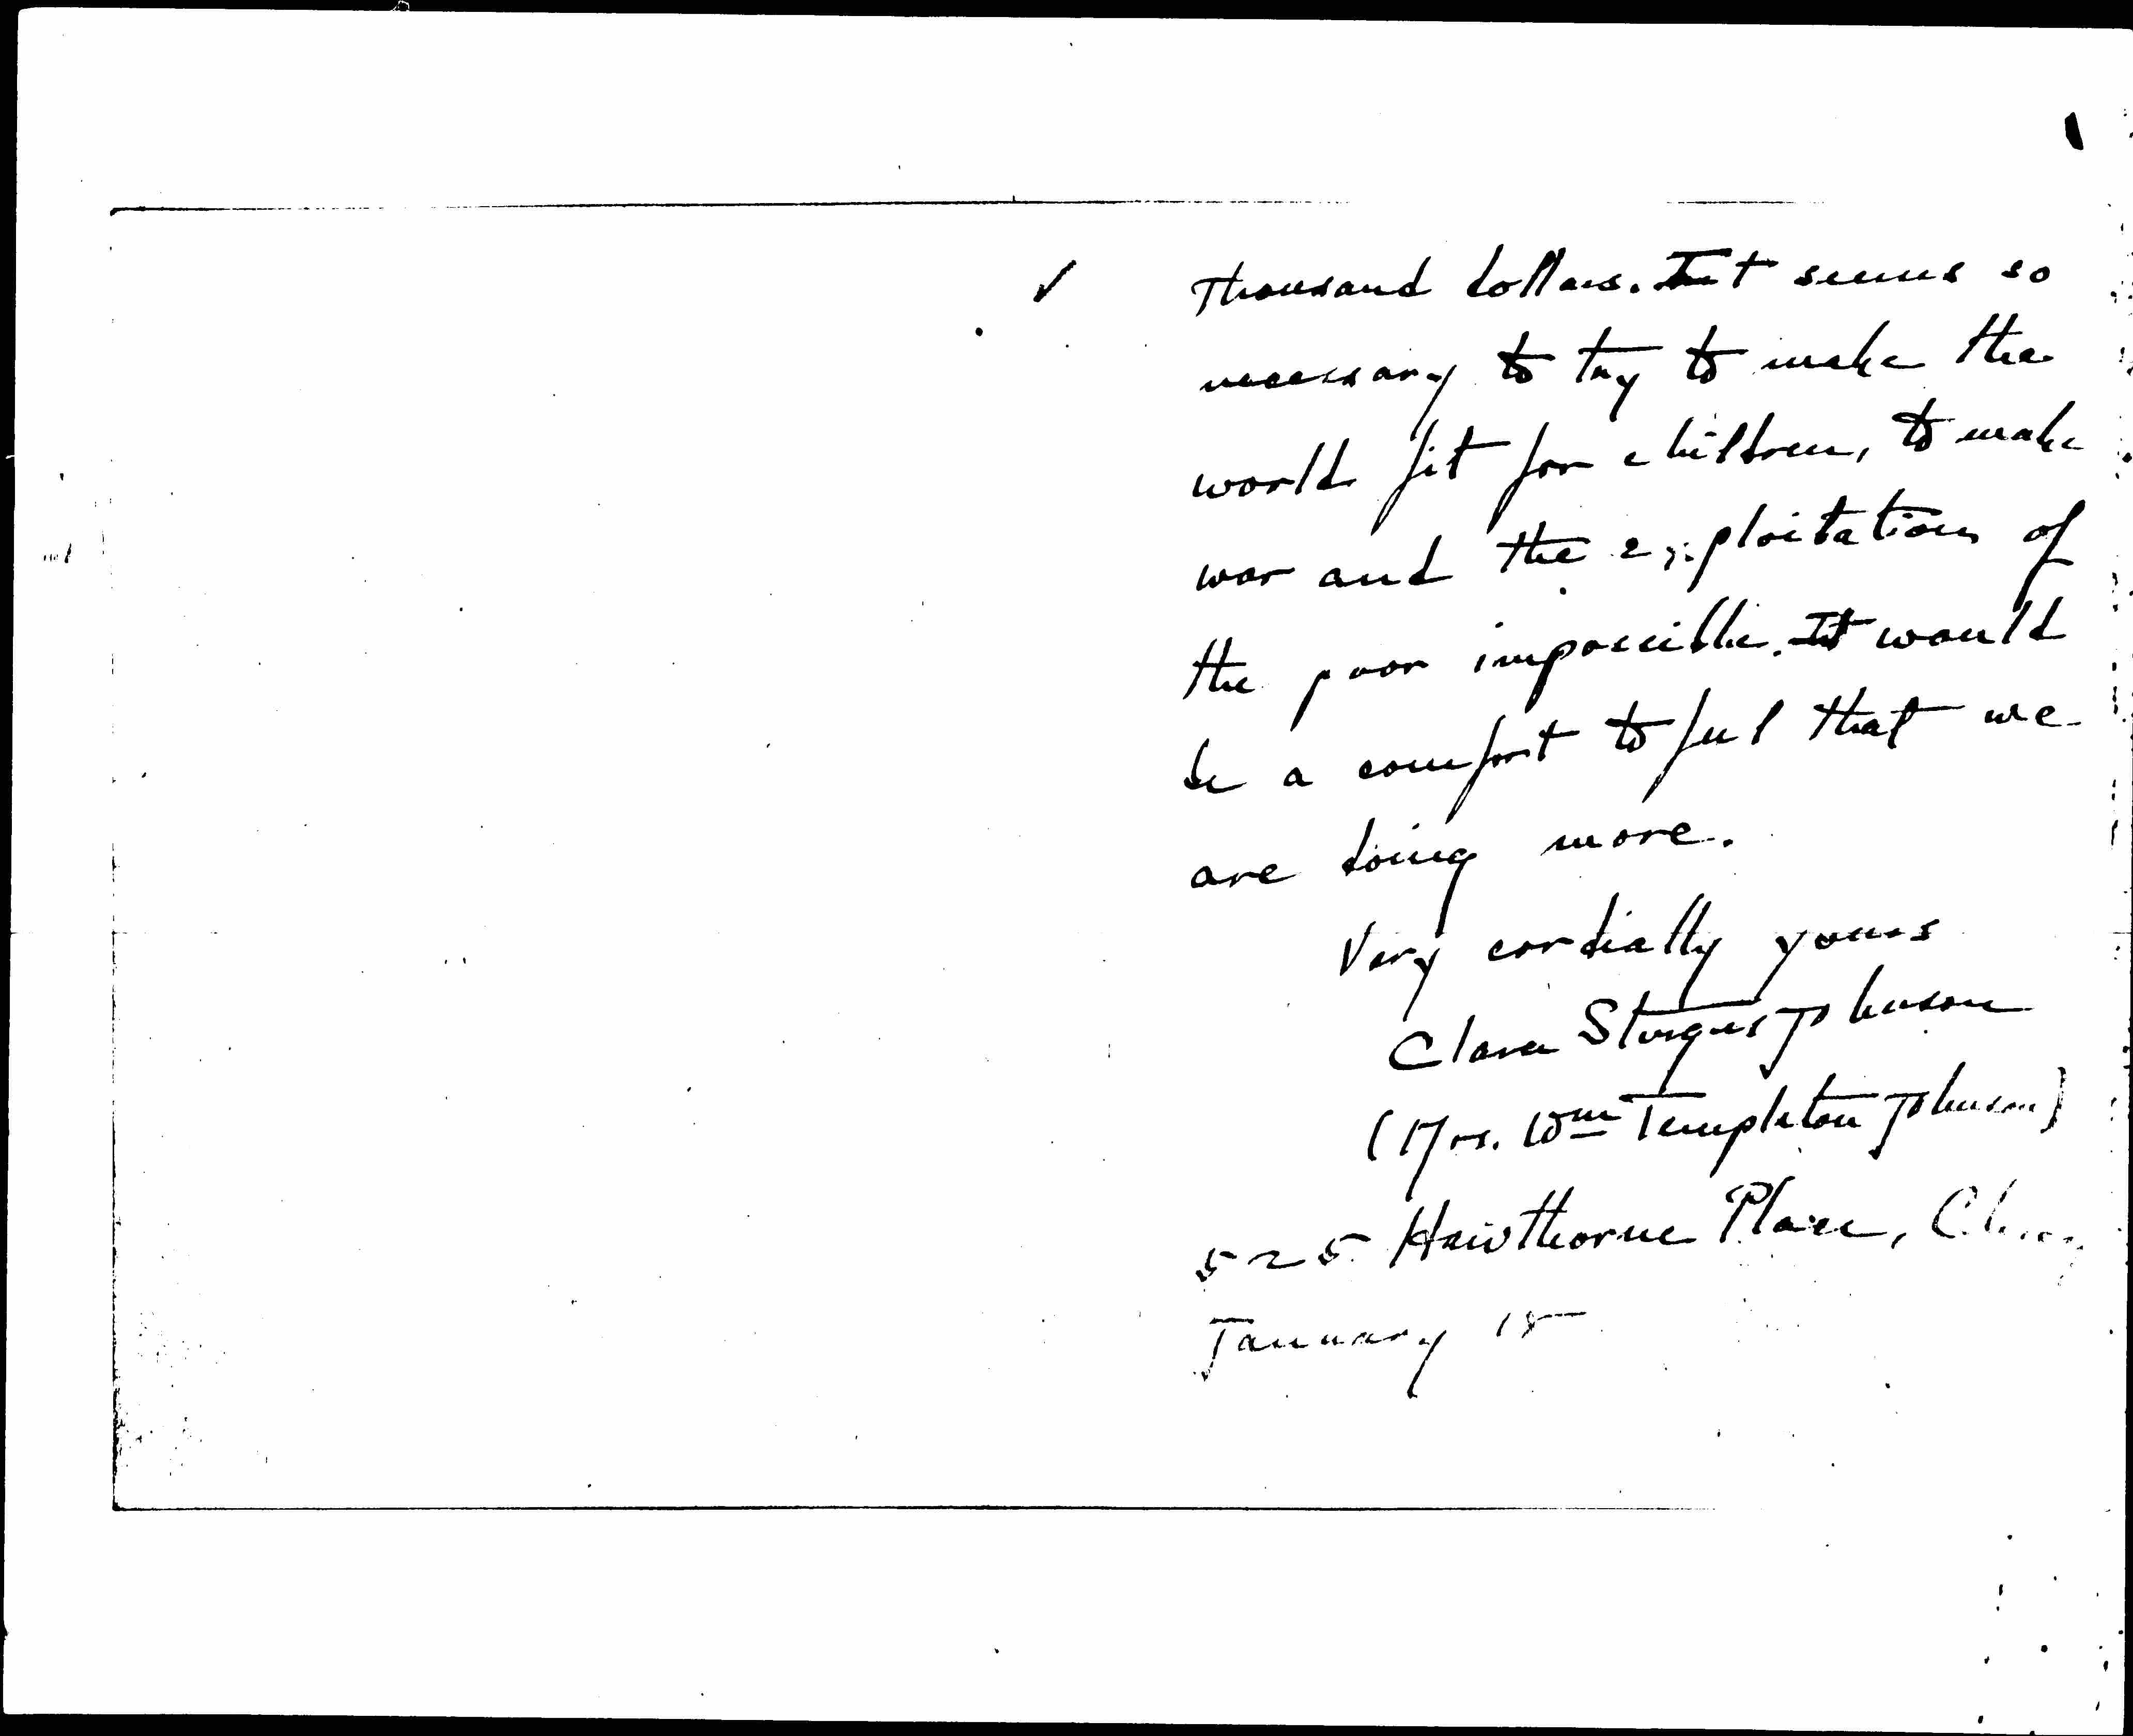 Thousand dollars. It seems so
necessary to try to make the
world fit for children, to make
war and the exploitation of
the poor impossible. It would
be a comfort to feel that we
are doing more.
Very cordially yours
Clara Sturges Johnson
(Mrs. Wm Templeton Johnson)
525 Hawthorne Place,
January 15